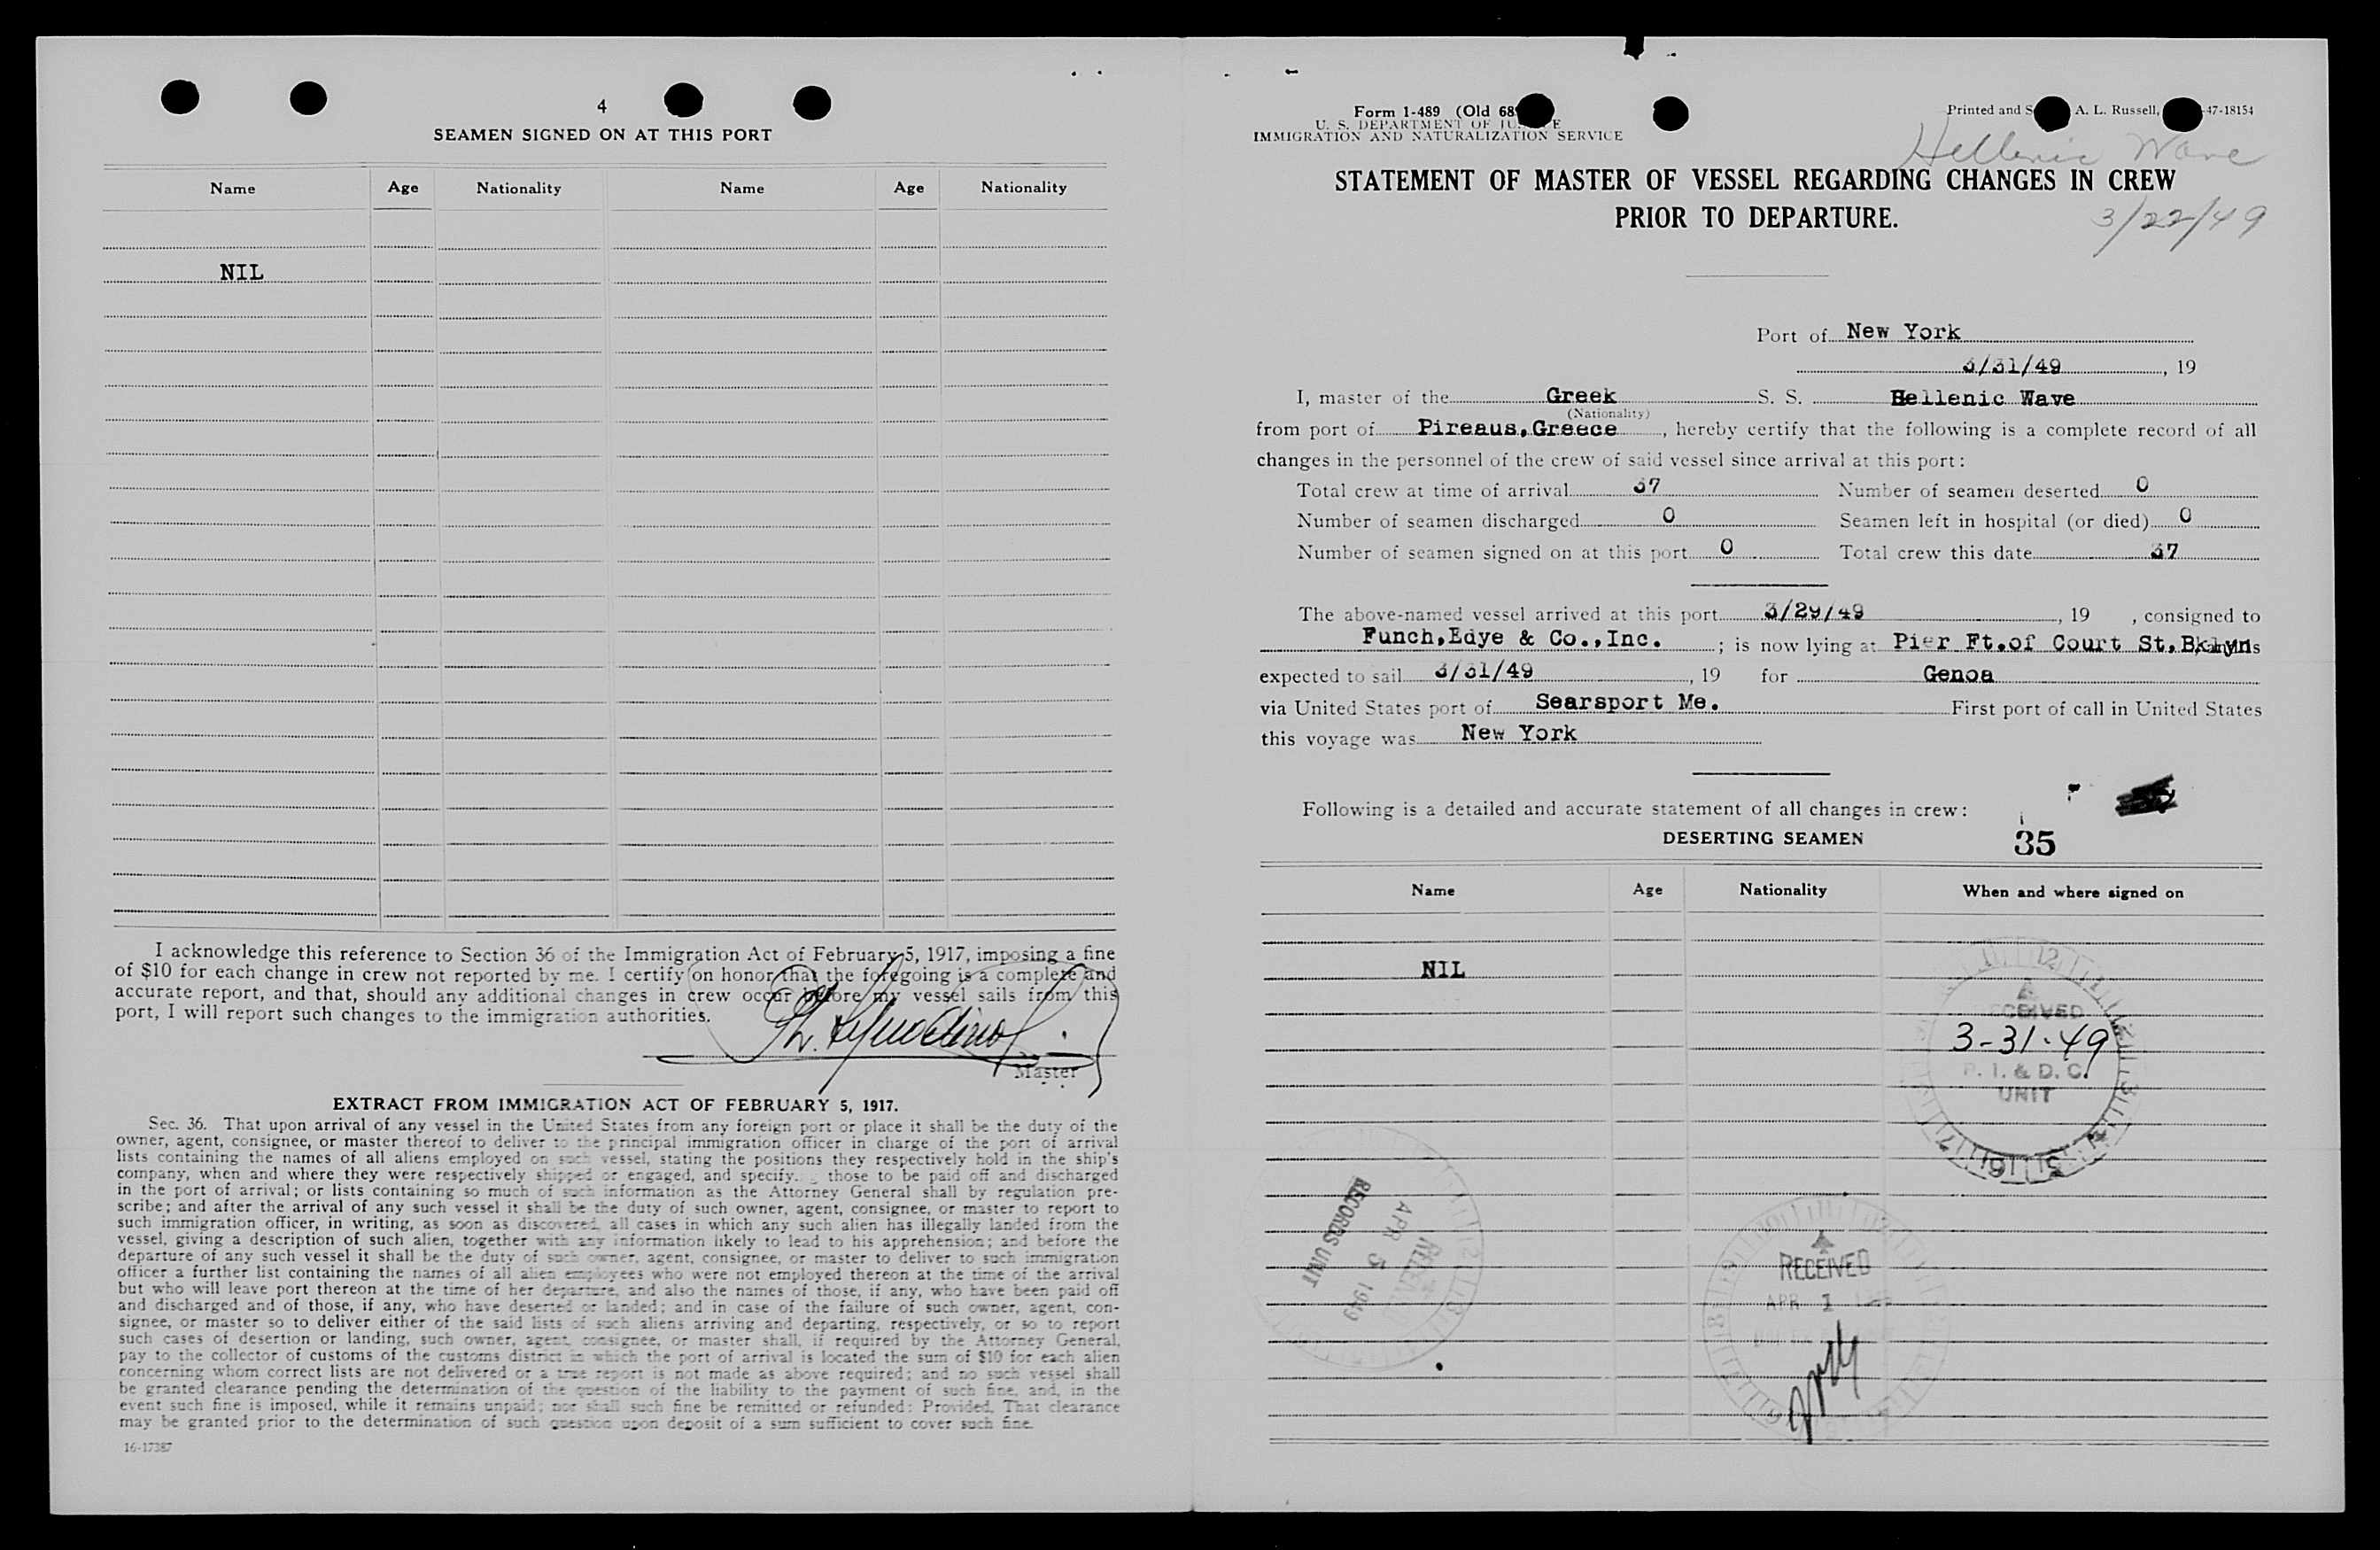 4
SEAMEN SIGNED ON AT THIS PORT
Name Age Nationality Name Age Nationality
NIL
I acknowledge this reference to Section 36 of the Immigration Act of February 5, 1917, imposing a fine
of $10 for each change in crew not reported by me. I certify on honor that the foregoing is a complete and
accurate report, and that, should any additional changes in crew occur before my vessel sails from this
port, I will report such changes to the immigration authorities.
Master
EXTRACT FROM IMMIGRATION ACT OF FEBRUARY 5, 1917.
Sec. 36. That upon arrival of any vessel in the United States from any foreign port or place it shall be the duty of the
owner, agent, consignee, or master thereof to deliver to the principal immigration officer in charge of the port of arrival
lists containing the names of all aliens employed on such vessel, stating the positions they respectively hold in the ship's
company, when and where they were respectively shipped or engaged, and specify. those to be paid off and discharged
in the port of arrival; or lists containing so much of such information as the Attorney General shall by regulation pre-
scribe; and after the arrival of any such vessel it shall be the duty of such owner, agent, consignee, or master to report to
such immigration officer, in writing, as soon as discovered, all cases in which any such alien has illegally landed from the
vessel, giving a description of such alien, together with any information likely to lead to his apprehension; and before the
departure of any such vessel it shall be the duty of such owner, agent, consignee, or master to deliver to such immigration
officer a further list containing the names of all alien employees who were not employed thereon at the time of the arrival
but who will leave port thereon at the time of her departure, and also the names of those, if any, who have been paid off
and discharged and of those, if any, who have deserted or landed; and in case of the failure of such owner, agent, con-
signee, or master so to deliver either of the said lists of such aliens arriving and departing, respectively, or so to report
such cases of desertion or landing, such owner, agent, consignee, or master shall, if required by the Attorney General,
pay to the collector of customs of the customs district in which the port of arrival is located the sum of $10 for each alien
concerning whom correct lists are not delivered or a true report is not made as above required; and no such vessel shall
be granted clearance pending the determination of the question of the liability to the payment of such fine, and, in the
event such fine is imposed, while it remains unpaid; nor shall such fine be remitted or refunded: Provided, That clearance
may be granted prior to the determination of such question upon deposit of a sum sufficient to cover such fine.
16-17387
Form 1-489 (Old 68
U. S. DEPARTMENT OF
IMMIGRATION AND NATURALIZATION SERVICE
Printed and S A. L. Russell, -47-18154
Hellenic Wave
STATEMENT OF MASTER OF VESSEL REGARDING CHANGES IN CREW
PRIOR TO DEPARTURE.
3/22/49
Port of New York
3/31/49, 19
I, master of the Greek S. S. Hellenic Wave
(Nationality)
from port of Pireaus, Greece, hereby certify that the following is a complete record of all
changes in the personnel of the crew of said vessel since arrival at this port:
Total crew at time of arrival 37 Number of seamen deserted 0
Number of seamen discharged 0 Seamen left in hospital (or died) 0
Number of seamen signed on at this port 0 Total crew this date 37
The above-named vessel arrived at this port 3/29/49, 19 , consigned to
Funch, Edye & Co., Inc. ; is now lying at Pier Ft. of Court St, Bklyn
expected to sail 3/31/49, 19 for Genoa
via United States port of Searsport Me. First port of call in United States
this voyage was New York
Following is a detailed and accurate statement of all changes in crew:
DESERTING SEAMEN 35
Name Age Nationality When and where signed on
NIL
RECEIVED
3-31-49
P. I. & D. C.
UNIT
RECORDS UNIT
APR 5 1949
RECEIVED
APR 1